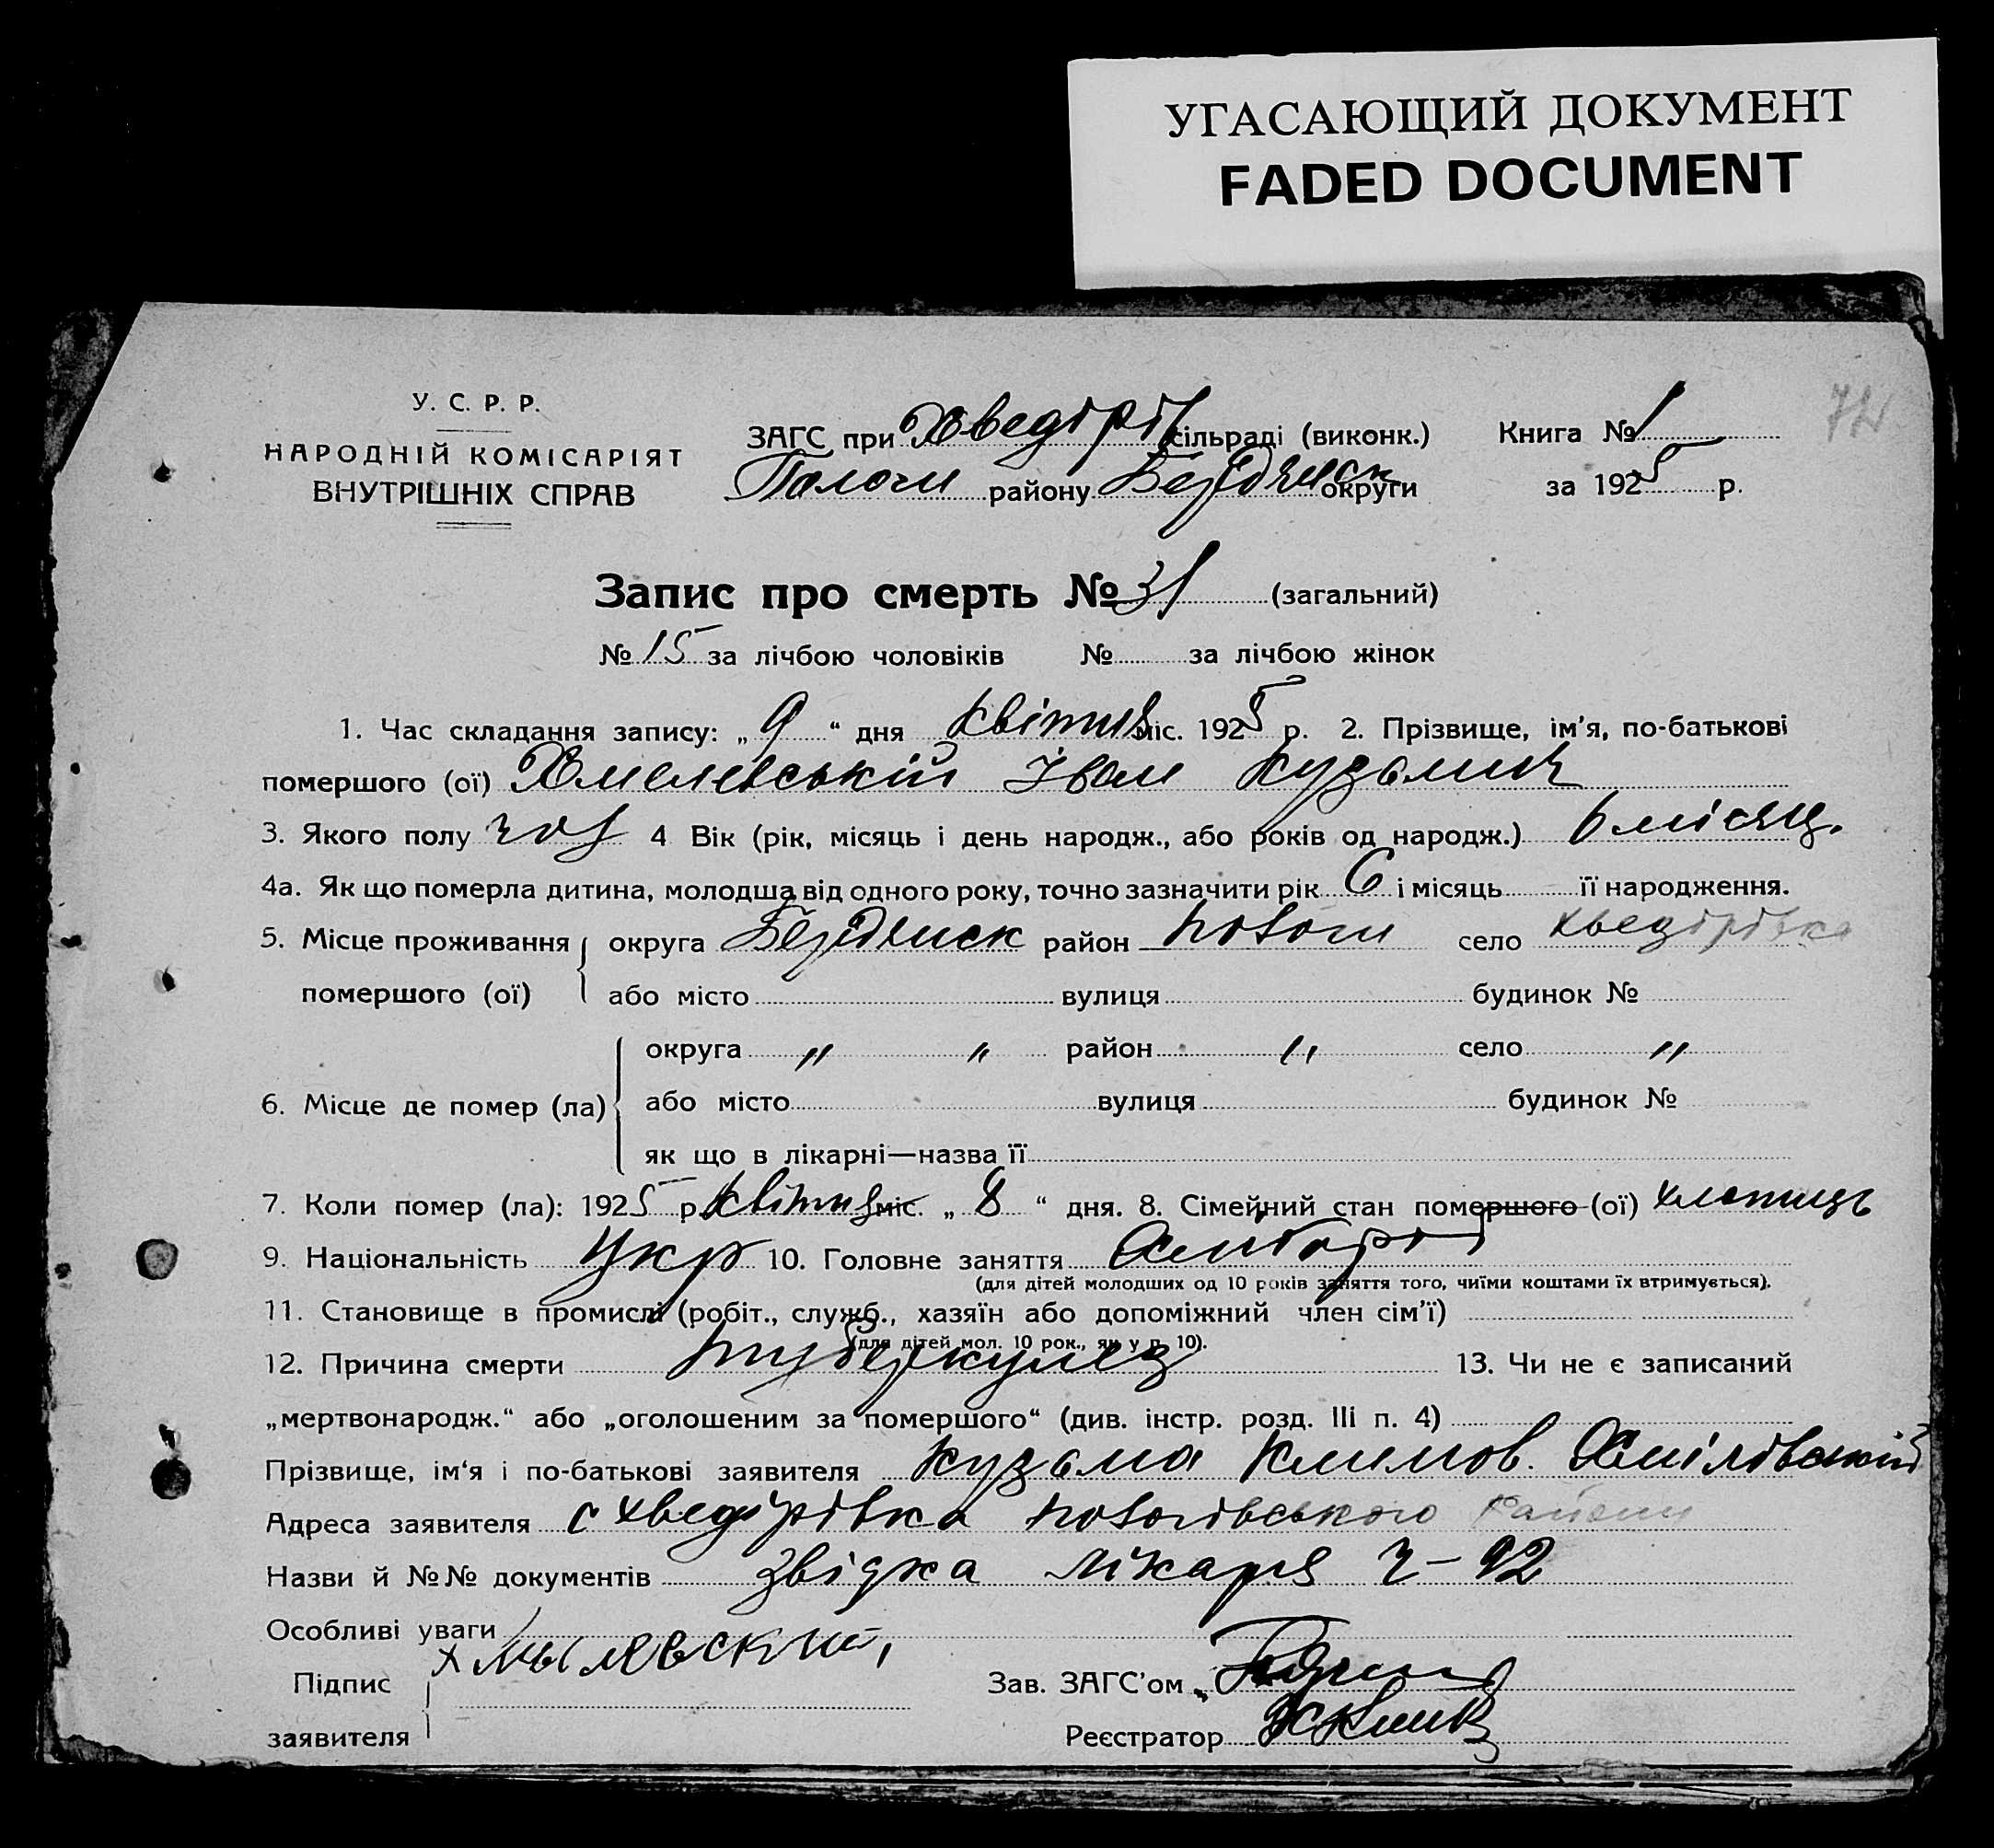 УГАСАЮЩИЙ ДОКУМЕНТ
FADED DOCUMENT
У. С. Р. Р.
НАРОДНІЙ КОМІСАРІЯТ
ВНУТРІШНІХ СПРАВ
ЗАГС при Хведірів сільраді (виконк.)
Пологи району Бердянськ округи
Книга № 1
за 1925 р.
72
Запис про смерть № 31 (загальний)
№ 15 за лічбою чоловіків № за лічбою жінок
1. Час складання запису: „ 9 “ дня Квітня міс. 1925 р. 2. Прізвище, ім'я, по-батькові
помершого (ої) Хмелевській Іван Кузьмич
3. Якого полу чол 4 Вік (рік, місяць і день народж., або років од народж.) 6 місяц.
4а. Як що померла дитина, молодша від одного року, точно зазначити рік 6 і місяць її народження.
5. Місце проживання помершого (ої) округа Бердянск район Пологи село Хведірівка
або місто вулиця будинок №
6. Місце де помер (ла) округа " " район " село "
або місто вулиця будинок №
як що в лікарні—назва її
7. Коли помер (ла): 1925 р. Квітня міс. „ 8 “ дня. 8. Сімейний стан помершого (ої) хлопиць
9. Національність Укр 10. Головне заняття Хлібороб
(для дітей молодших од 10 років заняття того, чиїми коштами їх втримується).
11. Становище в промислі (робіт., служб., хазяїн або допоміжний член сім'ї)
(для дітей мол. 10 рок., як у п. 10).
12. Причина смерти туберкулез 13. Чи не є записаний
„мертвонародж.“ або „оголошеним за помершого“ (див. інстр. розд. III п. 4)
Прізвище, ім'я і по-батькові заявителя Кузьма Климов. Хмілівській
Адреса заявителя с Хведірівка Пологівського Району
Назви й №№ документів звідка лікаря ч - 92
Особливі уваги
Підпис заявителя Хмылевский
Зав. ЗАГС'ом
Реєстратор